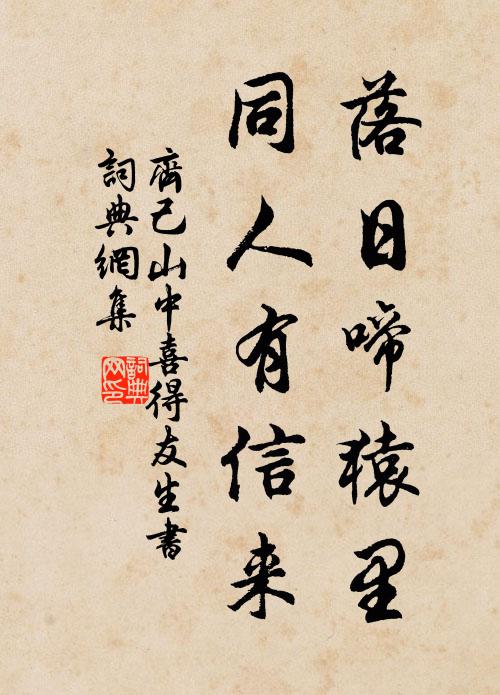 落日啼猿里
同人有信来
齊己山中喜得友生書
詞典網集
詞典
网印